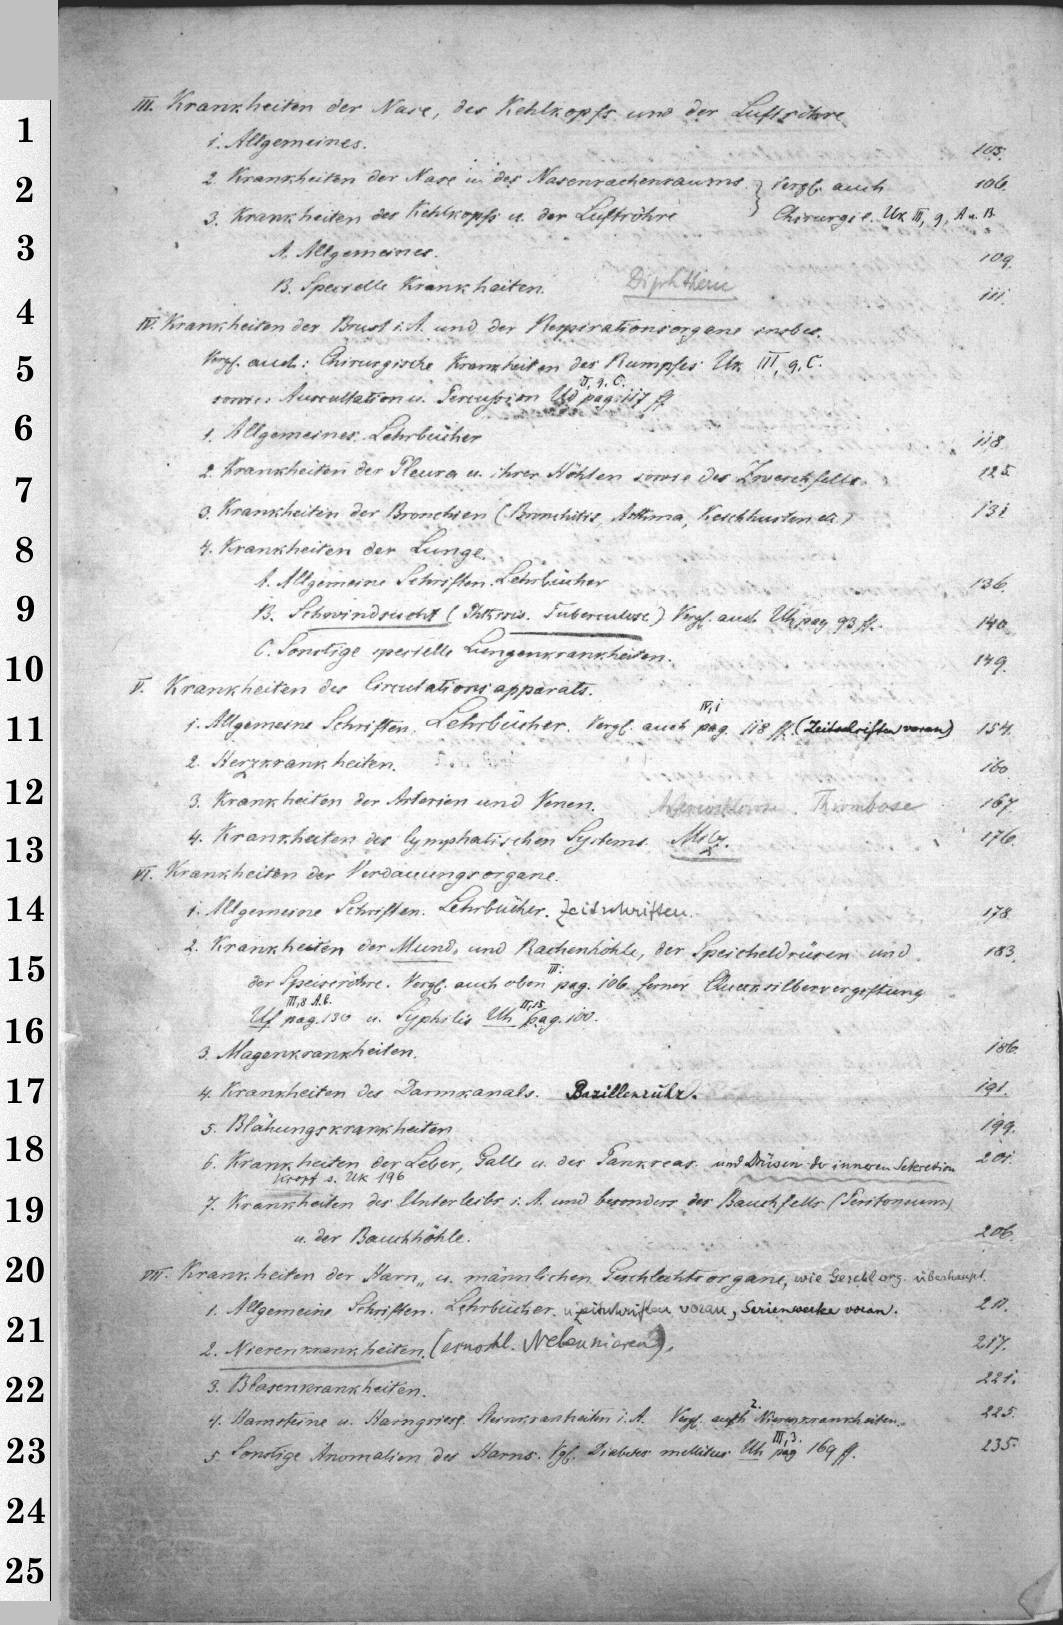 III. Krankheiten der Nase, des Kehlkopfs und der Luftröhre
1
1. Allgemeines. 105.
2
2. Krankheiten der Nase u. des Nasenrachenraums } Vergl. auch 106
3. Krankheiten des Kehlkopfs u. der Luftröhre } Chirurgie. Uk III, 9, A u. B
3
A. Allgemeines. 109.
B. Specielle Krankheiten. Diphtherie 111.
4
IV. Krankheiten der Brust i. A. und der Respirationsorgane insbes.
5
Vergl. auch: Chirurgische Krankheiten des Rumpfes Uk III, 9, C.
II, 9, C.
sowie: Auscultation u. Percussion Ud pag. 117 ff
6
1. Allgemeines. Lehrbücher 118
7
2. Krankheiten der Pleura u. ihrer Höhlen sowie des Zwerchfells. 125.
3. Krankheiten der Bronchien (Bronchitis, Asthma, Keuchhusten etc) 131
8
4. Krankheiten der Lunge.
A. Allgemeine Schriften. Lehrbücher 136.
9
B. Schwindsucht (Phthisis. Tuberculose) Vergl. auch Uh pag 93 ff. 140.
10
C. Sonstige specielle Lungenkrankheiten. 149.
V. Krankheiten des Circulationsapparats.
IV, 1
11
1. Allgemeine Schriften. Lehrbücher. Vergl. auch pag. 118 ff. (Zeitschriften voran) 154.
2. Herzkrankheiten. 160
12
3. Krankheiten der Arterien und Venen. Thrombose 167.
13
4. Krankheiten des lymphatischen Systems. Milz. 176.
VI. Krankheiten der Verdauungsorgane.
14
1. Allgemeine Schriften. Lehrbücher. Zeitschriften. 178.
2. Krankheiten der Mund- und Rachenhöhle, der Speicheldrüsen und 183.
15
III:
der Speiseröhre. Vergl. auch oben pag. 106. ferner Quecksilbervergiftung
III, 8 A.b. II, 15
16
Uf pag. 130 u. Syphilis Uh pag. 100.
3. Magenkrankheiten. 186.
17
4. Krankheiten des Darmkanals. Bazillenruhr. 191.
5. Blähungskrankheiten 199.
18
6. Krankheiten der Leber, Galle u. des Pankreas. und Drüsen der inneren Sekretion 201.
Kropf s. Uk 196
19
7. Krankheiten des Unterleibs i. A. und besonders des Bauchfells (Peritoneum)
u. der Bauchhöhle. 206.
20
VII. Krankheiten der Harn- u. männlichen Geschlechtsorgane, wie Geschl org. überhaupt.
1. Allgemeine Schriften. Lehrbücher. u Zeitschriften voran, Serienwerke voran. 211.
21
2. Nierenkrankheiten. (einschl. Nebennieren). 217.
22
3. Blasenkrankheiten. 221.
2.
4. Harnsteine u. Harngries. Steinkrankheiten i. A. Vergl. auch Nierenkrankheiten. 225.
III, 3.
23
5. Sonstige Anomalien des Harns. Vgl. Diabetes mellitus Uh pag 169 ff. 235.
24
25